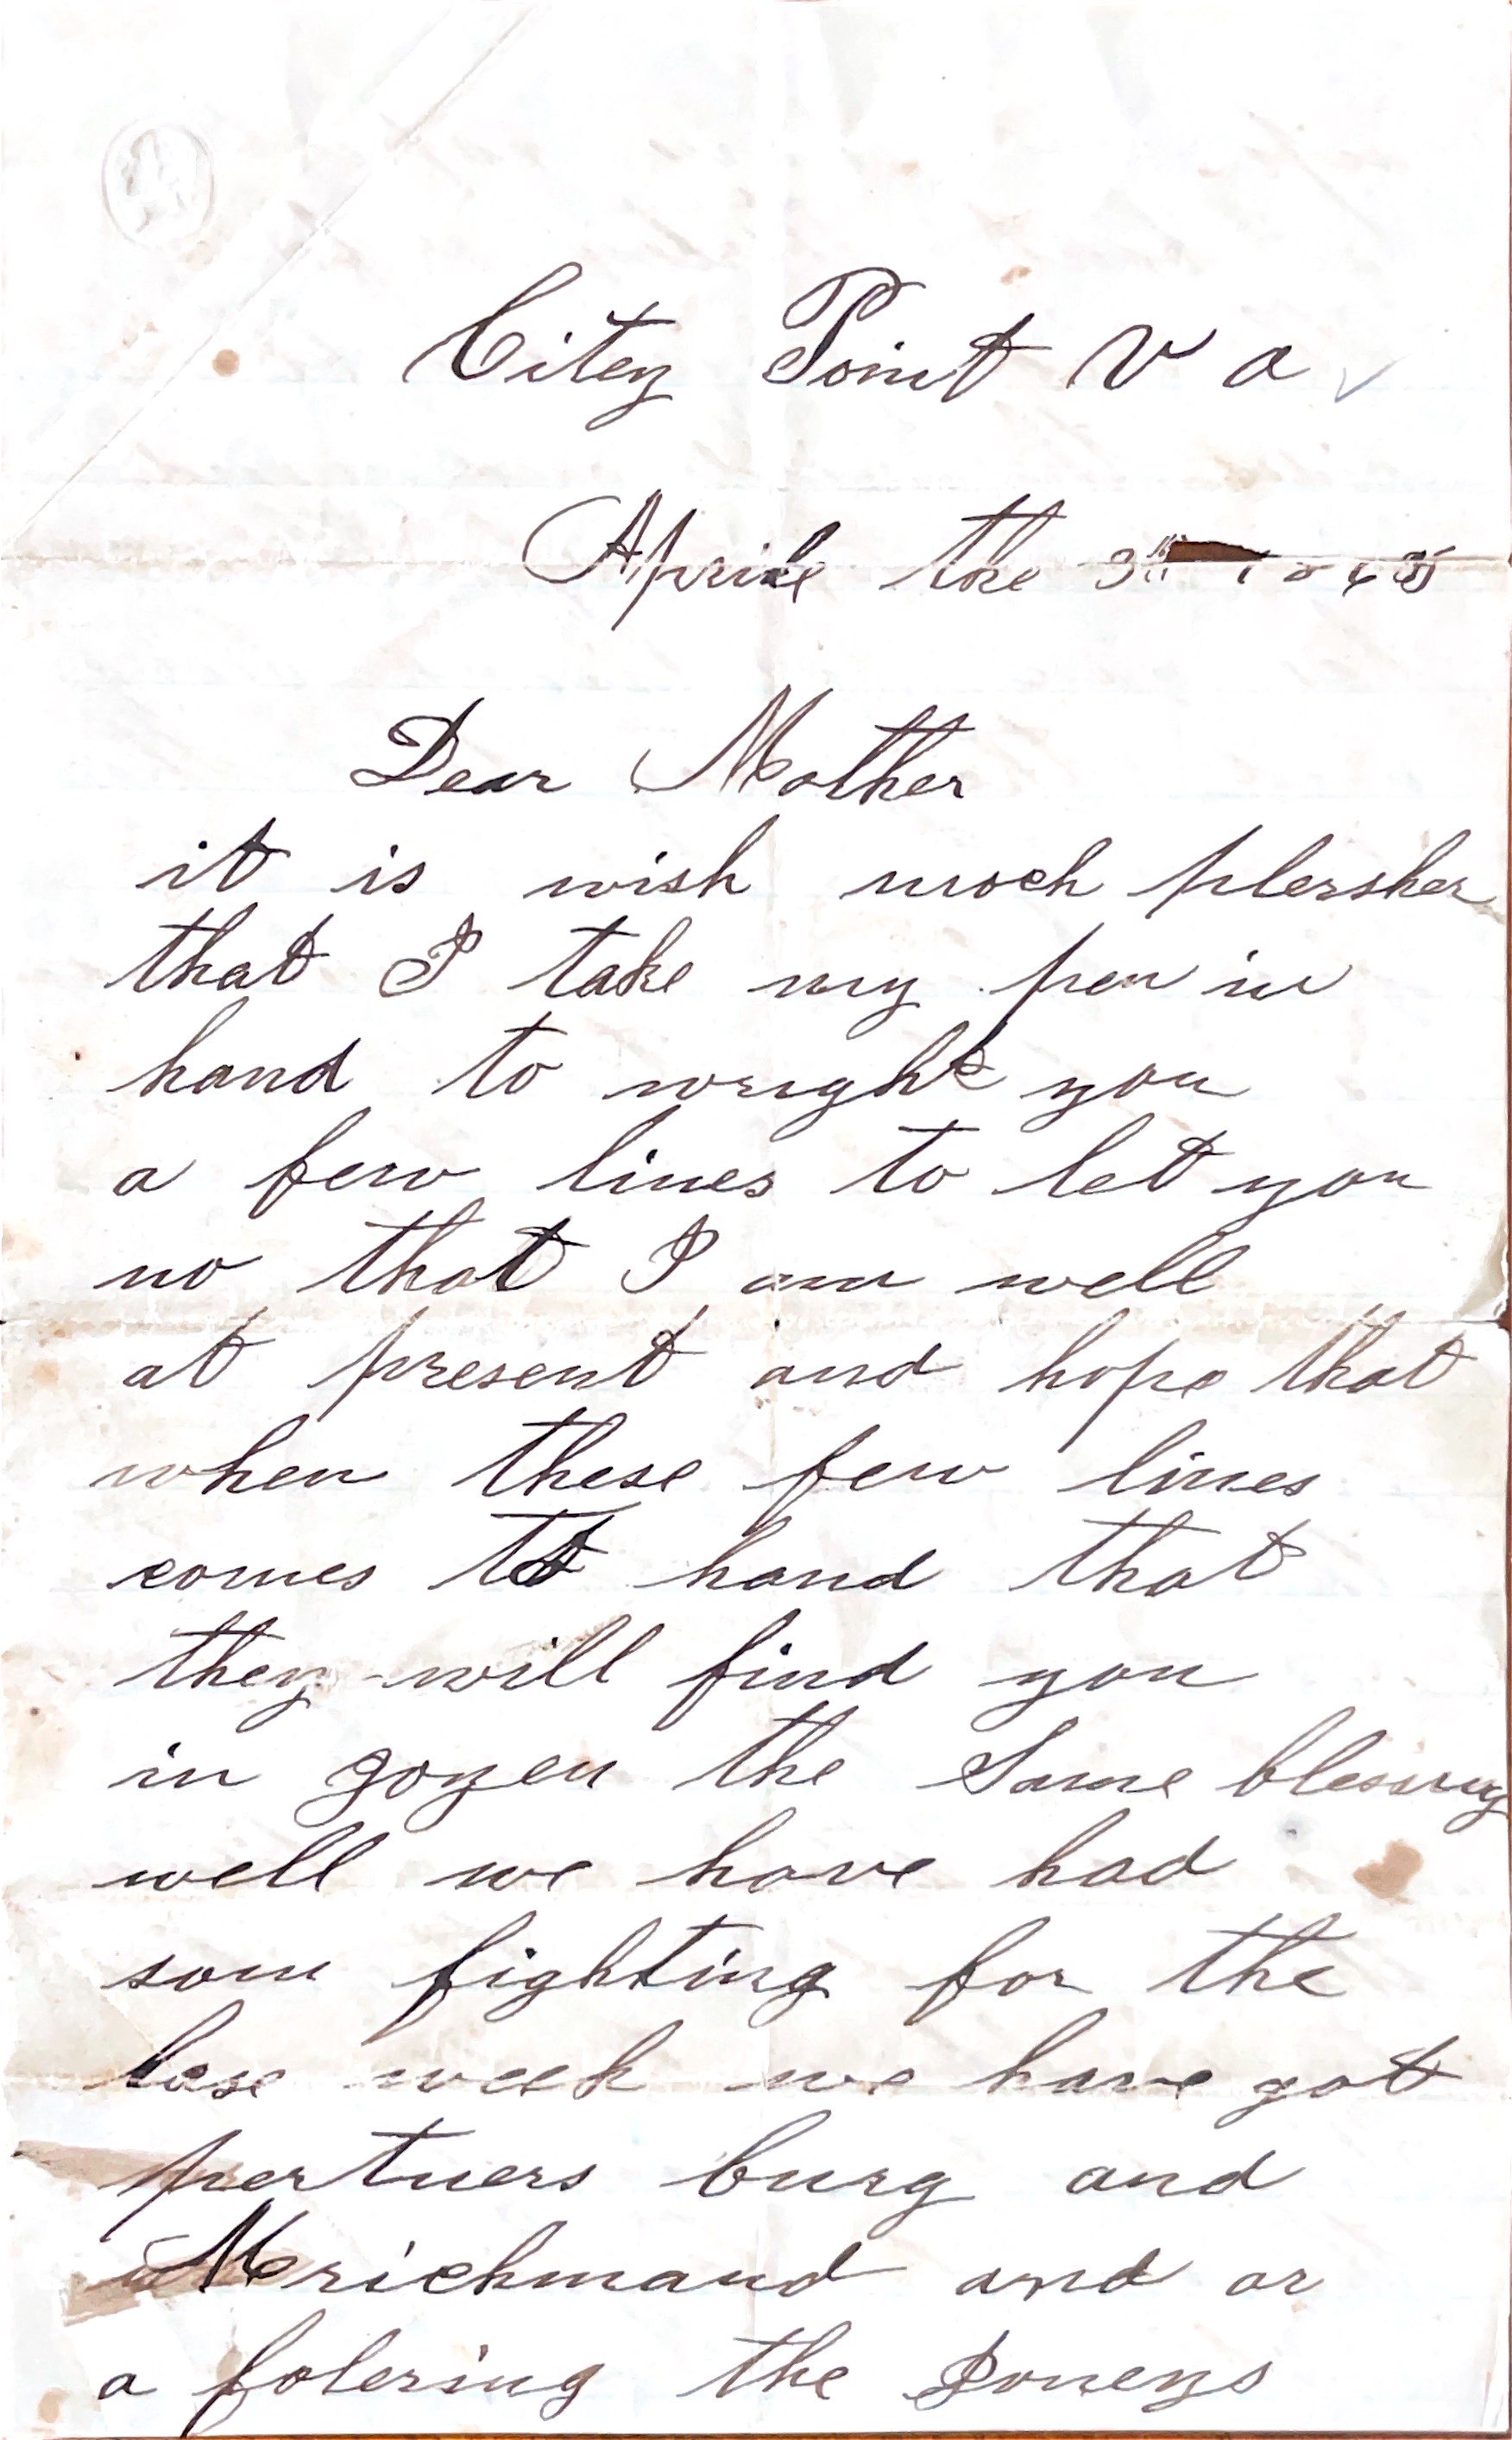 Citey Point V a
Aprile the 9th 1865
Dear Mother
it is wish moch plersher
that I take my pen in
hand to wright you
a few lines to let you
no that I am well
at present and hope that
when these few lines
comes to hand that
they will find you
in goyen the Same blessing
well we have had
som fighting for the
lase week we have got
pertners burg and
richmand and or
a folering the Joneys